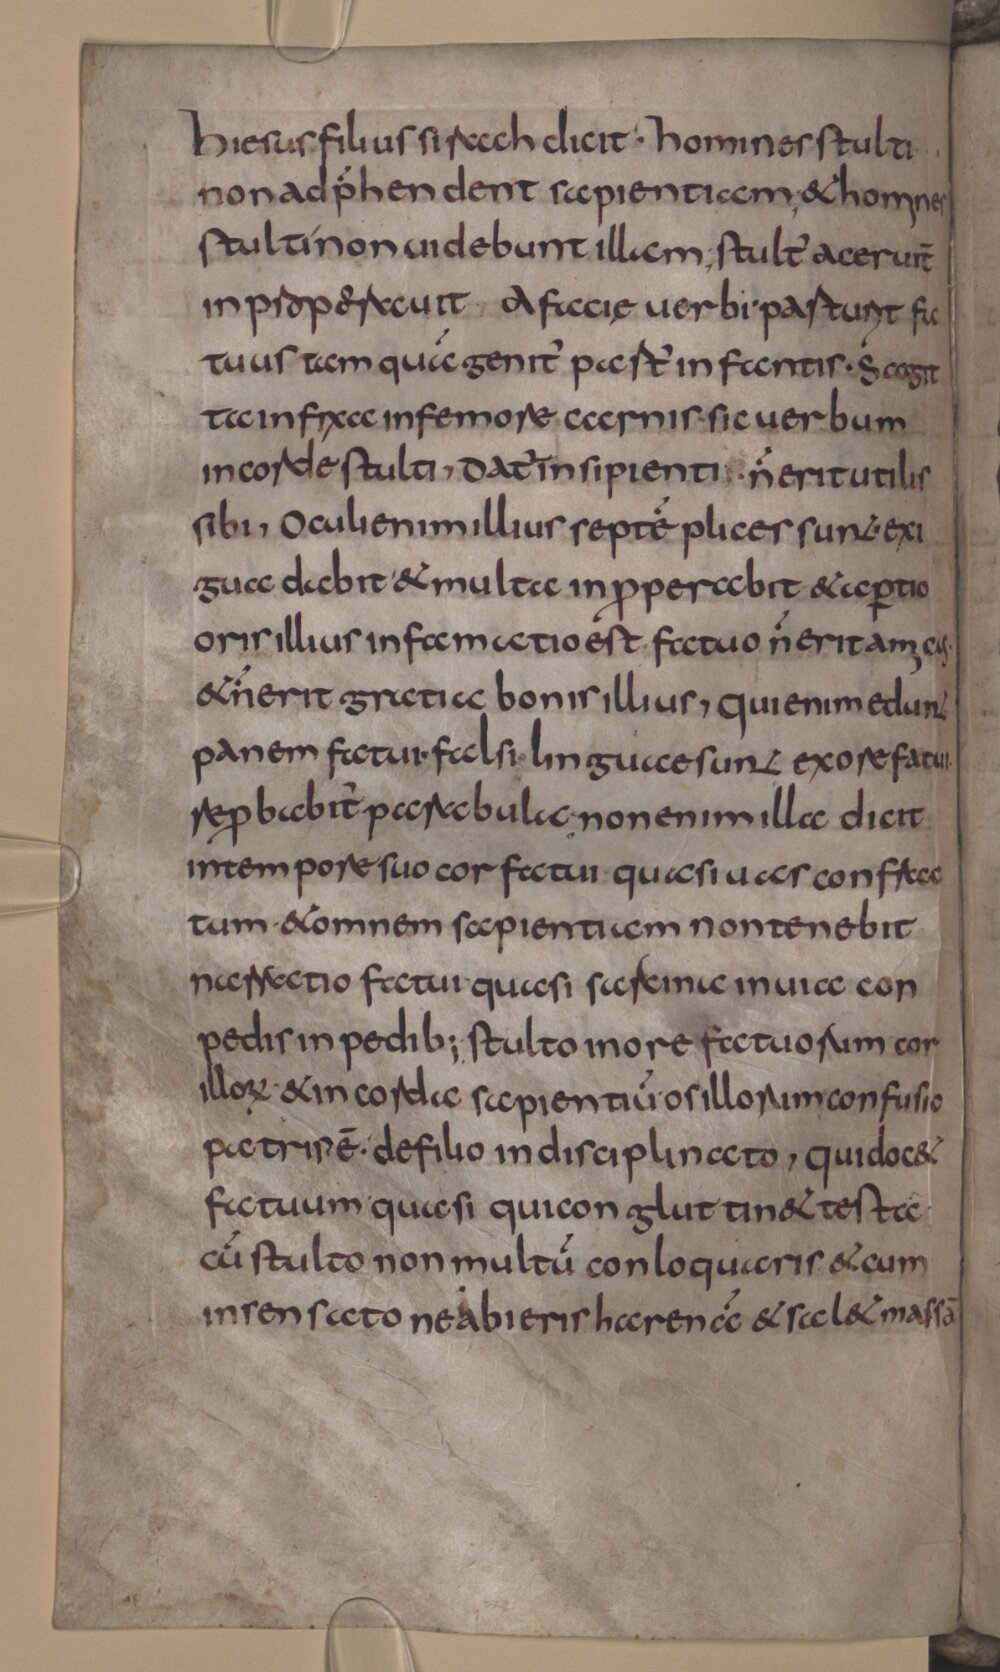 hiesus filius sirach dicit · homines stulti
non adp̄hendent sapientiam, & homines
stulti non uidebunt illam, stult' acerui͞t
in properauit A facie uerbi · pasturit fa
tuus tam quā genit' past' infantis · Sagit
ta infixa infemore carnis · sic uerbum
in corde stulti, Dat' insipienti · n̄ erit utilis
sibi, Oculi enim illius septē plices sunt · exi
gua dabit & multa inpperabit & apertio
oris illius infamatio est · fatuo n̄ erit amicus
& n̄ erit gratia bonis illius, qui enim edunt
panem fatui · falsi linguae sunt ex ore fatui
repbabit' parabula · non enim illa dicit
in tempore suo cor fatui quasi uas confrac
tum · & omnem sapientiam non tenebit
narratio fatui quasi sarcina in uia con
pedis in pedib; stulto in ore fatuorum cor
illoꝝ · & in corda sapientiū os illorum confusio
patris ē · de filio indisciplinato, qui doc&
fatuum quasi qui con gluttin& testa
cū stulto non multū conloquaris & cum
insensato ne abieris harenā & sal & massā